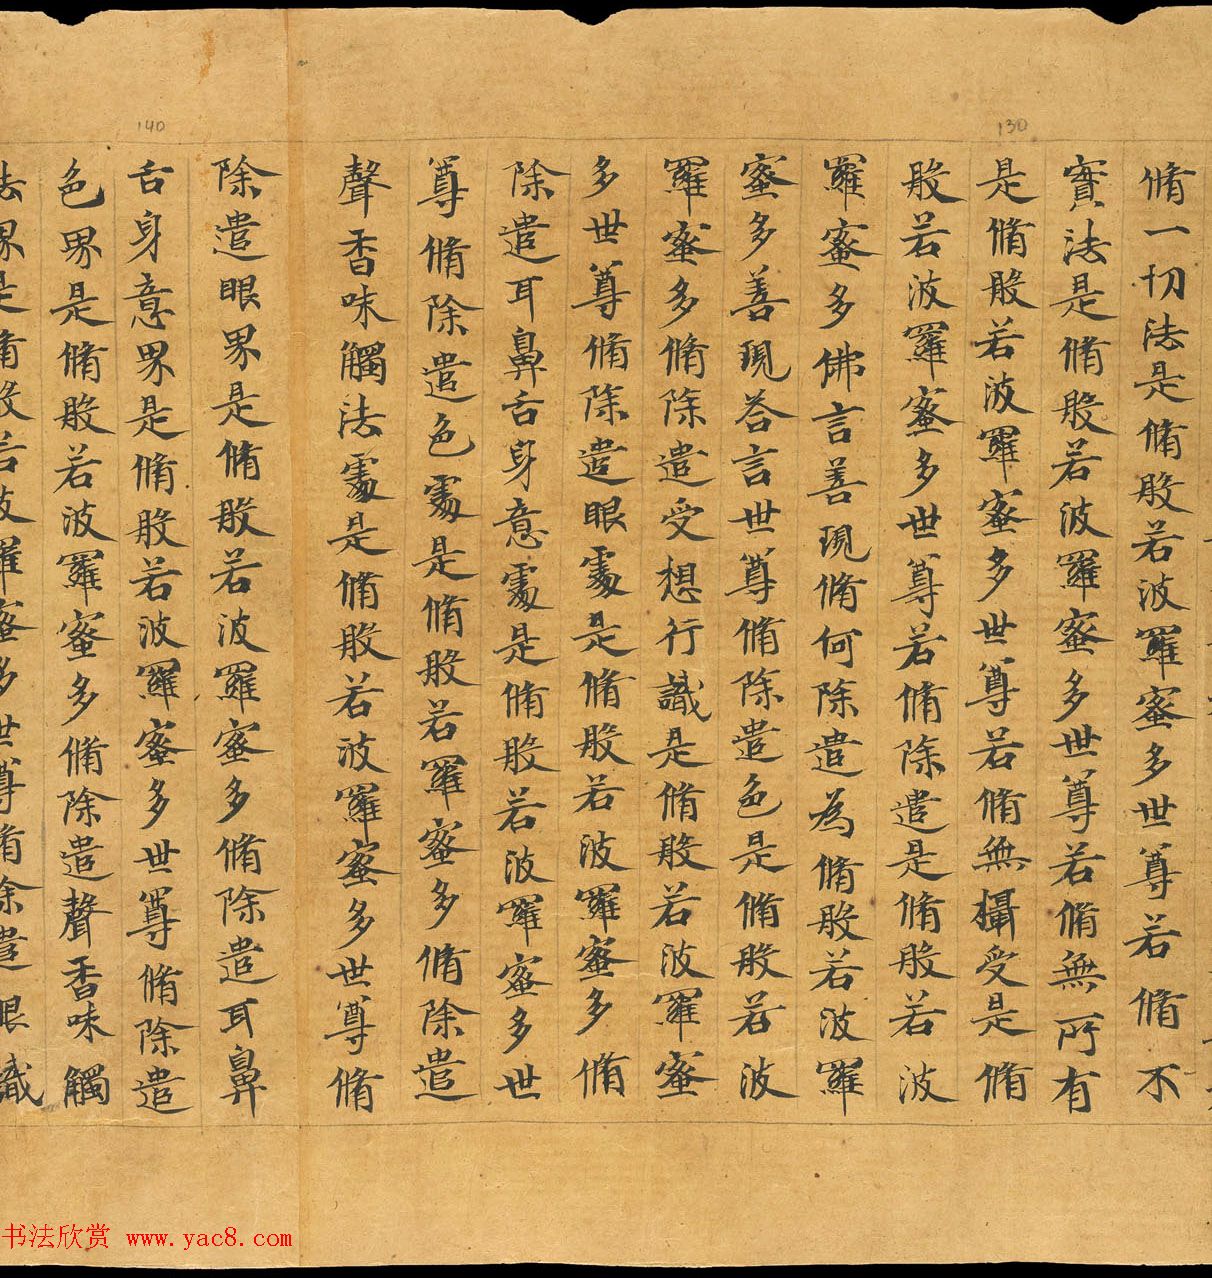 130
140
脩一切法是脩般若波羅蜜多世尊若脩不
實法是脩般若波羅蜜多世尊若脩無所有
是脩般若波羅蜜多世尊若脩無攝受是脩
般若波羅蜜多世尊若脩除遣是脩般若波
羅蜜多佛言善現脩何除遣為脩般若波羅
蜜多善現荅言世尊脩除遣色是脩般若波
羅蜜多脩除遣受想行識是脩般若波羅蜜
多世尊脩除遣眼處是脩般若波羅蜜多脩
除遣耳鼻舌身意處是脩般若波羅蜜多世
尊脩除遣色處是脩般若羅蜜多脩除遣
聲香味觸法處是脩般若波羅蜜多世尊脩
除遣眼界是脩般若波羅蜜多脩除遣耳鼻
舌身意界是脩般若波羅蜜多世尊脩除遣
色界是脩般若波羅蜜多脩除遣聲香味觸
法界是脩般若波羅蜜多世尊脩除遣眼識
书法欣赏 www.yac8.com